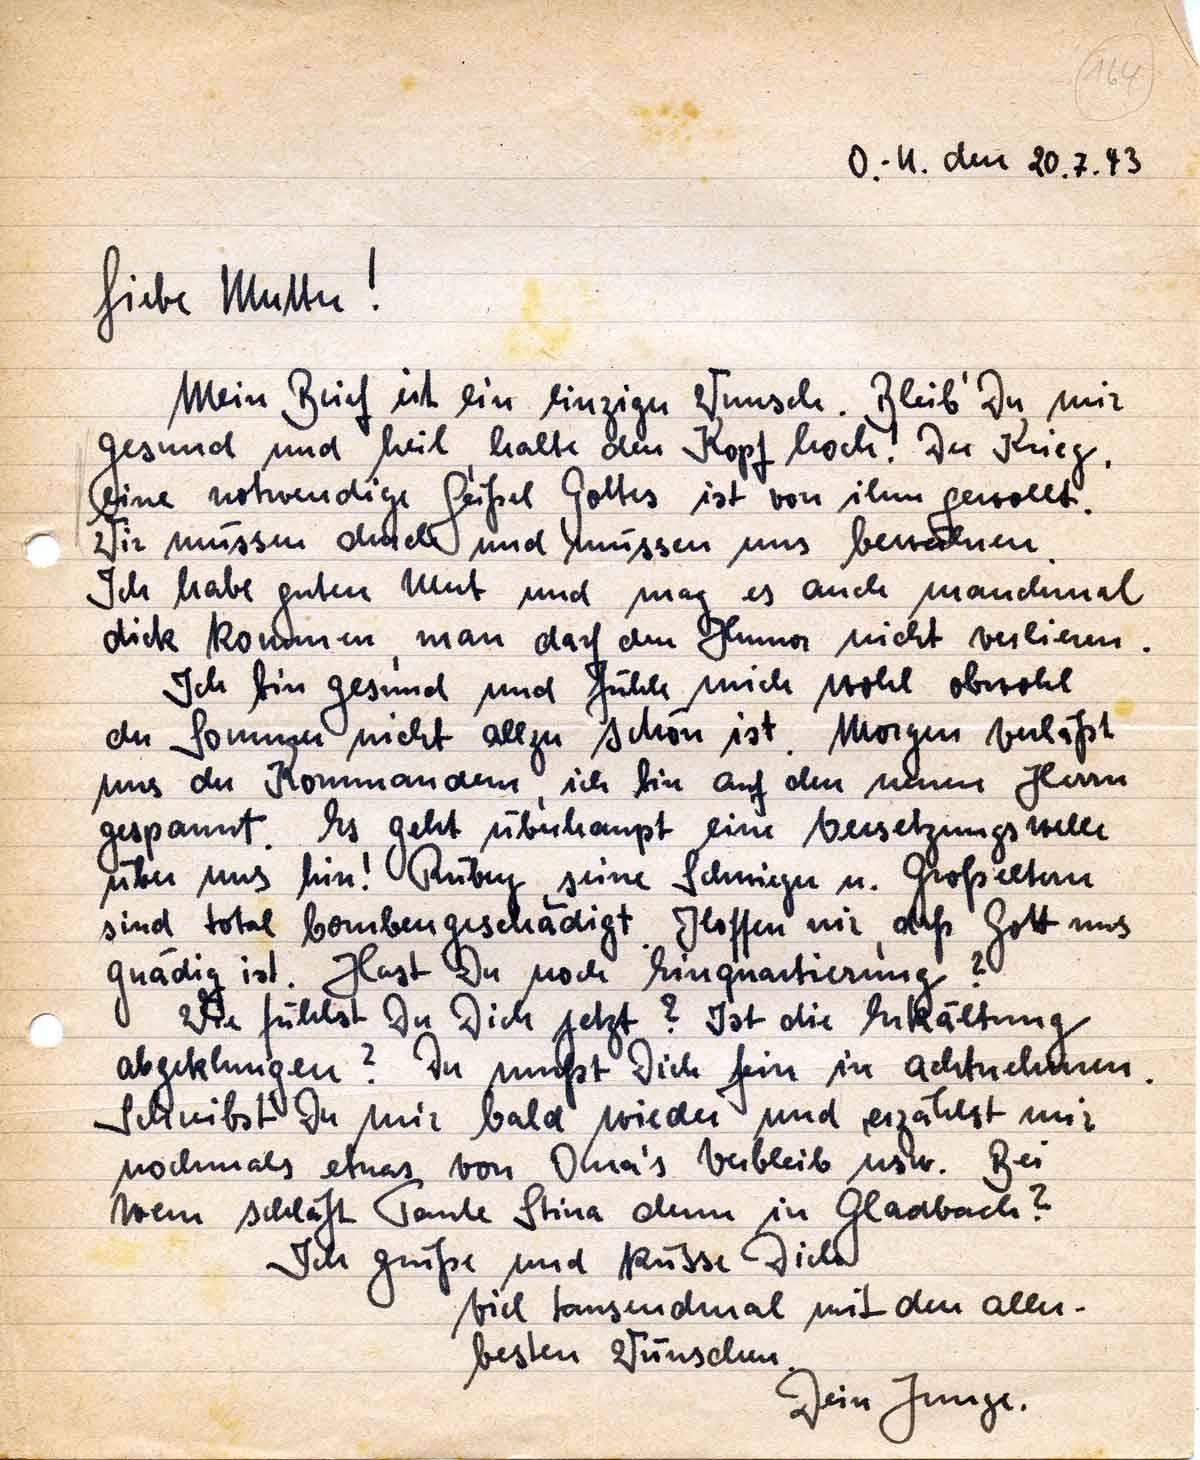 164
O.-U. den 20.7.43
Liebe Mutter!
Mein Brief ist ein einziger Wunsch. Bleib' Du mir
gesund und heil, halte den Kopf hoch! Der Krieg,
eine notwendige Geißel Gottes ist von ihm gewollt.
Wir müssen durch und müssen uns bewähren.
Ich habe guten Mut und mag es auch manchmal
dick kommen, man darf den Humor nicht verlieren.
Ich bin gesund und fühle mich wohl obwohl
der Sommer nicht allzu schön ist. Morgen verläßt
uns der Kommandeur, ich bin auf den neuen Herrn
gespannt. Es geht überhaupt eine Versetzungswelle
über uns hin! seine Schwieger u. Großeltern
sind total bombengeschädigt. Hoffen wir, daß Gott uns
gnädig ist. Hast Du noch Einquartierung?
Wie fühlst Du Dich jetzt? Ist die Erkältung
abgeklungen? Du mußt Dich fein in achtnehmen.
Schreibst Du mir bald wieder und erzählst mir
nochmals etwas von Oma's Verbleib usw. Bei
wem schläft Tante Stina denn in Gladbach?
Ich grüße und küsse Dich
viel tausendmal mit den aller-
besten Wünschen.
Dein Junge.